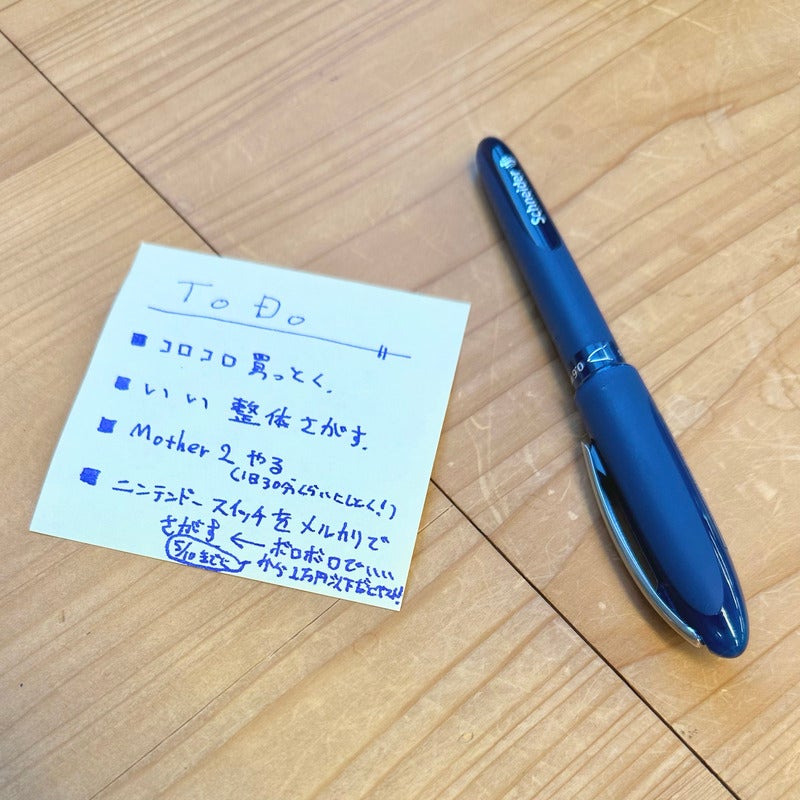 To Do
コロコロ買っとく.
いい整体さがす.
Mother 2 やる
(1日30分くらいにしとく!)
ニンテンドースイッチをメルカリで
さがす ← ボロボロでいい
から1万円以下だとベスト!
5/10までに
Schneider